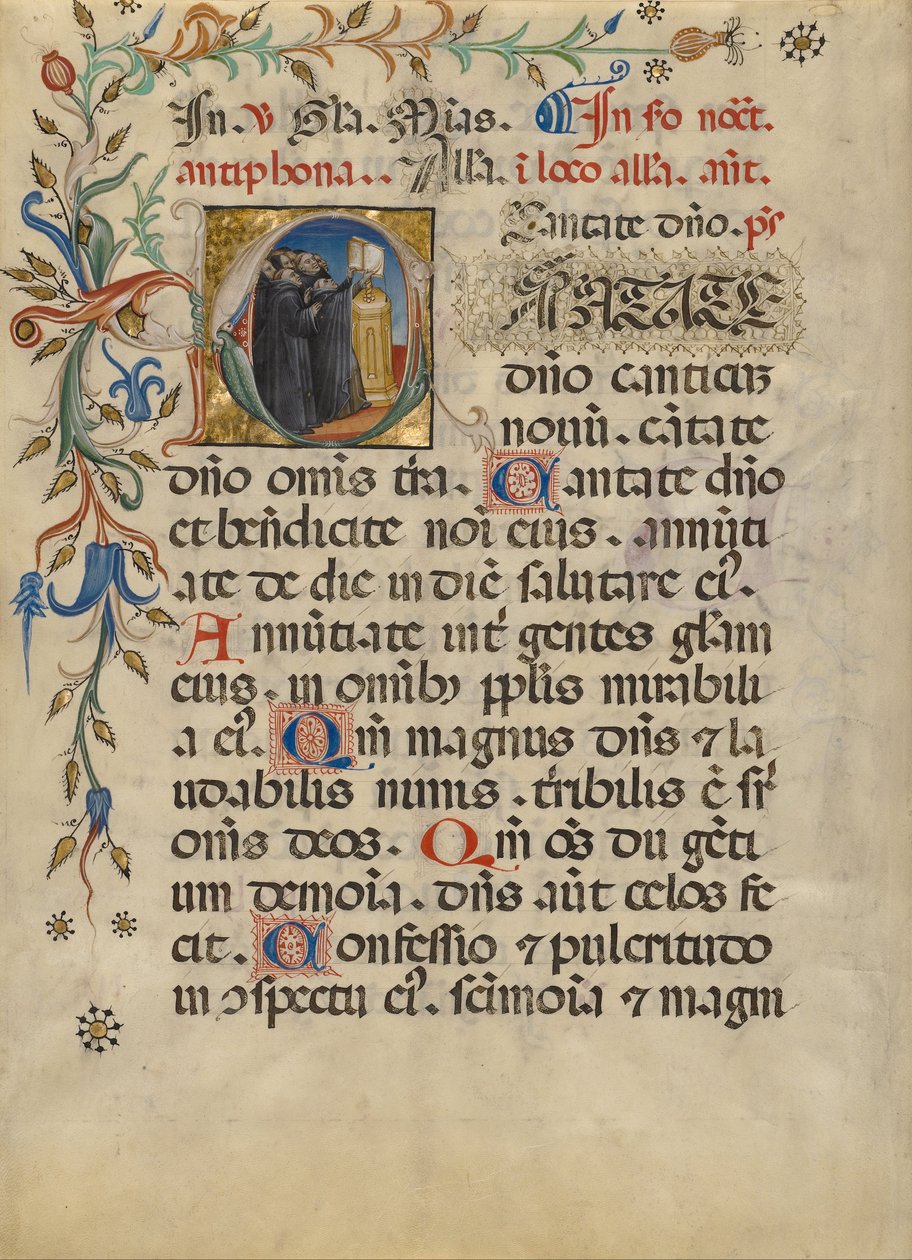 In. v Gl̄a. Mīas. In sō noc̄t.
antiphona.. All̄a. ī loco all̄a. an̄t.
Cantate dn̄o. ps̄
CANTATE
dn̄o canticuꝫ
nouū. cātate
dn̄o om̄is t̄ra. Cantate dn̄o
et ben̄dicite noī eius. annūti
ate de die in diē salutare ei᾿.
Annūtiate int᾿ gentes gl̄am
eius. in om̄ibꝫ ppl̄is mirabili
a ei᾿. Qm̄ magnus dn̄s ⁊ la
udabilis nimis. t̄ribilis ē sr᾿
om̄is deos. Qm̄ oc̄s dii gēti
um demoīa. dn̄s aūt celos fe
cit. Confessio ⁊ pulcritudo
in ↄspectu ei᾿. sc̄imoīa ⁊ magni